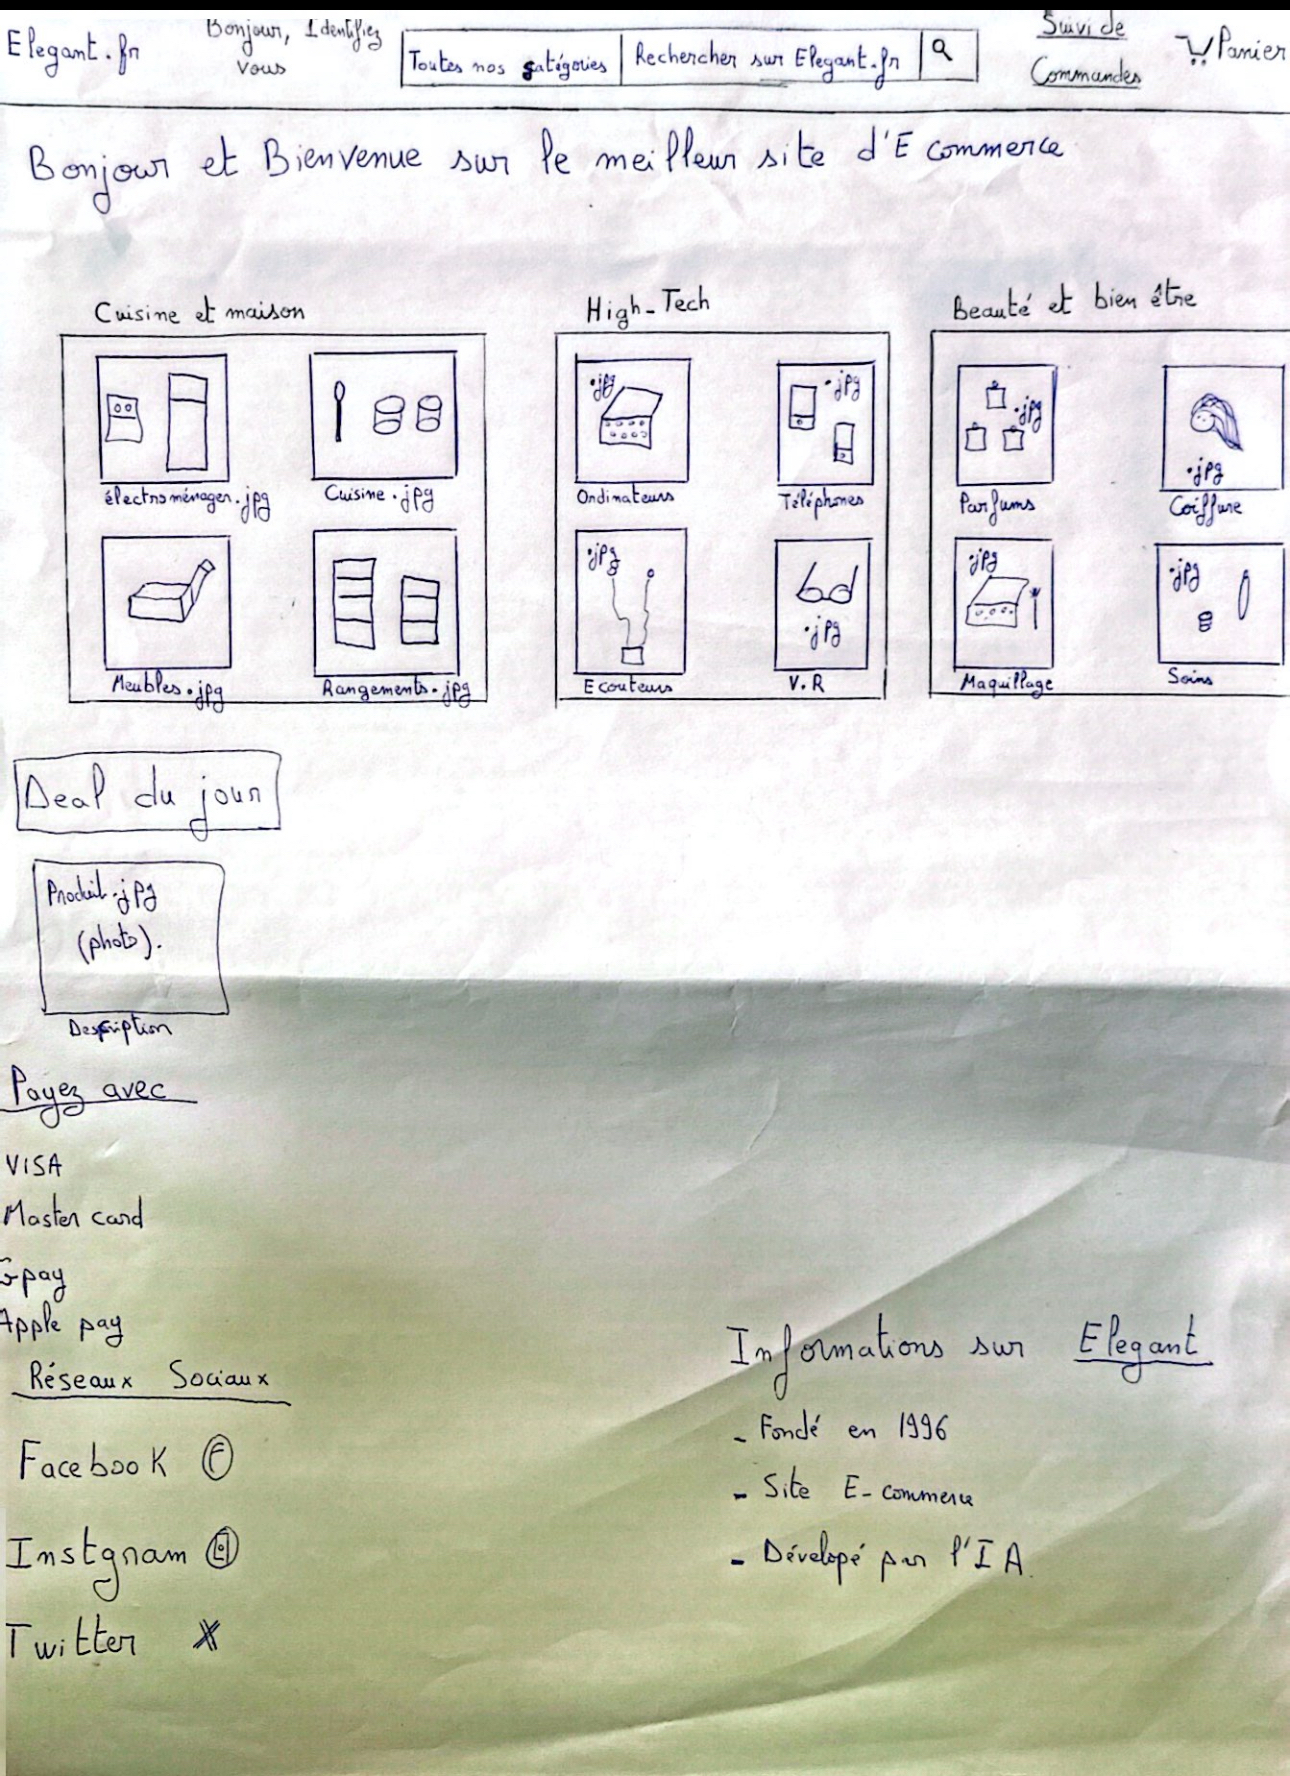 Elegant.fr
Bonjour, Identifiez
vous
Toutes nos catégories
Rechercher sur Elegant.fr
Suivi de
Commandes
Panier
Bonjour et Bienvenue sur le meilleur site d'E commerce
Cuisine et maison
électroménager.jpg
Cuisine.jpg
Meubles.jpg
Rangements.jpg
High-Tech
.jpg
.jpg
Ordinateurs
Téléphones
.jpg
.jpg
Ecouteurs
V.R
Beauté et bien être
.jpg
.jpg
Parfums
Coiffure
.jpg
.jpg
Maquillage
Soins
Deal du jour
Produit.jpg
(photo).
Description
Payez avec
VISA
Master card
G pay
Apple pay
Réseaux Sociaux
Facebook F
Instgram
Twitter X
Informations sur Elegant
- Fondé en 1996
- Site E-commerce
- Dévelopé par l'IA.